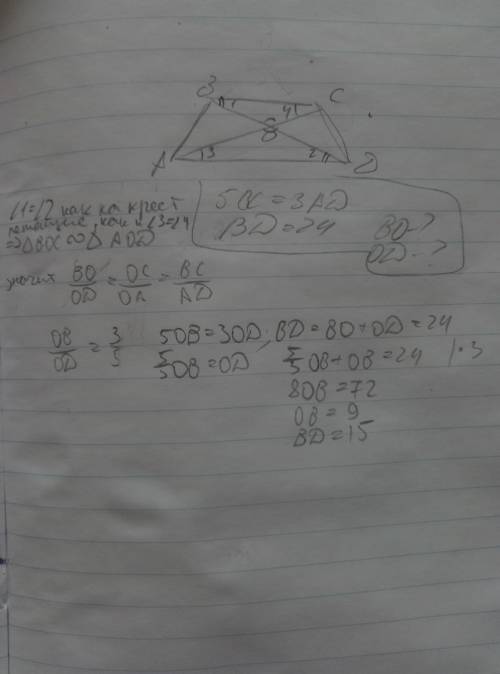 B C
4
O
A 3 2 D
∠1=∠2 как на крест
лежащие, как и ∠3=∠4
⇒ΔBOC ∾ Δ AOD
5BC = 3AD
BD = 24
BO-?
OD-?
значит BO/OD = OC/OA = BC/AD
OB/OD = 3/5 5OB = 3OD; BD = BO + OD = 24
5/3OB = OD 5/3OB + OB = 24 | · 3
8OB = 72
OB = 9
BD = 15